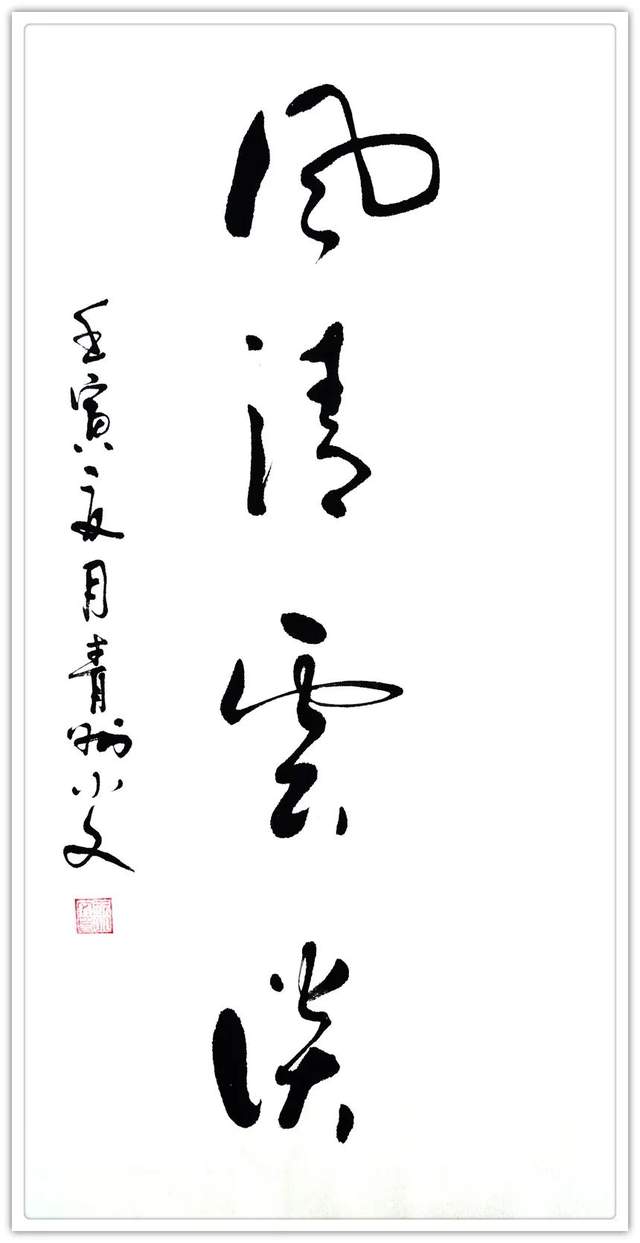 風清雲淡
壬寅之夏月青州小文